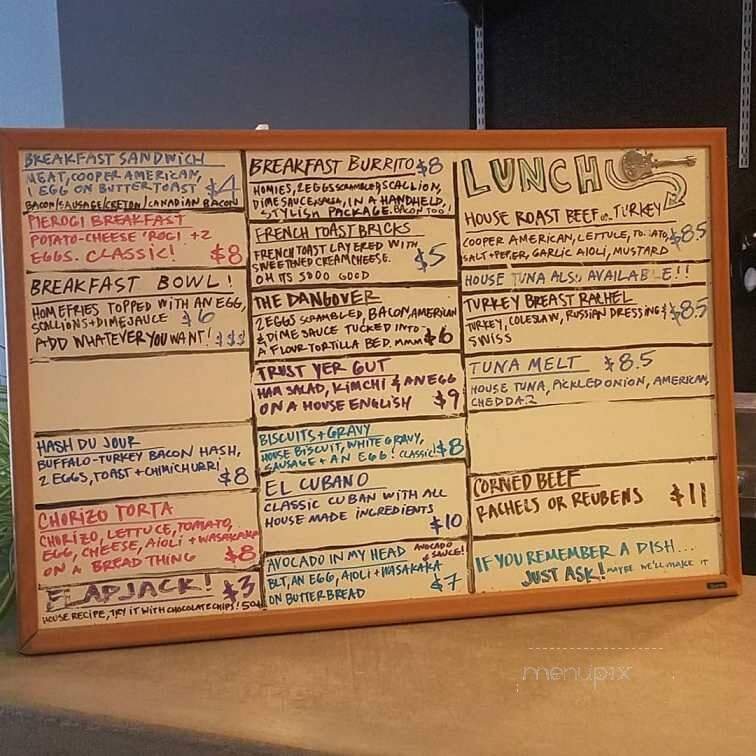 BREAKFAST SANDWICH
MEAT, COOPER AMERICAN,
1 EGG ON BUTTERTOAST $4
BACON/SAUSAGE/CRETON/CANADIAN BACON
PIEROGI BREAKFAST
POTATO-CHEESE 'ROGI +2
EGGS. CLASSIC! $8
BREAKFAST BOWL!
HOMEFRIES TOPPED WITH AN EGG,
SCALLIONS+DIMEJAUCE $6
ADD WHATEVER YOU WANT! $$$
HASH DU JOUR
BUFFALO-TURKEY BACON HASH,
2 EGGS, TOAST + CHIMICHURRI $8
CHORIZO TORTA
CHORIZO, LETTUCE, TOMATO,
EGG, CHEESE, AIOLI + WASAKAKA
ON A BREAD THING $8
FLAPJACK! $3
HOUSE RECIPE, TRY IT WITH CHOCOLATE CHIPS! 50¢
BREAKFAST BURRITO $8
HOMIES, 2 EGGS SCRAMBLED, SCALLION,
DIME SAUCE, IN A HANDHELD,
STYLISH PACKAGE. BACON TOO!
FRENCH TOAST BRICKS
FRENCH TOAST LAYERED WITH
SWEETENED CREAMCHEESE. $5
OH ITS SOOO GOOD
THE DANGOVER
2 EGGS SCRAMBLED, BACON, AMERICAN
& DIME SAUCE TUCKED INTO
A FLOUR TORTILLA BED. MMM $6
TRUST YER GUT
HAM SALAD, KIMCHI & AN EGG
ON A HOUSE ENGLISH $9
BISCUITS + GRAVY
HOUSE BISCUIT, WHITE GRAVY,
SAUSAGE + AN EGG! CLASSIC! $8
EL CUBANO
CLASSIC CUBAN WITH ALL
HOUSE MADE INGREDIENTS
$10
AVOCADO IN MY HEAD AVOCADO & SAUCE!
BLT, AN EGG, AIOLI + WASAKAKA
ON BUTTERBREAD $7
LUNCH
HOUSE ROAST BEEF OR TURKEY
COOPER AMERICAN, LETTUCE, TOMATO, $8.5
SALT+PEPPER, GARLIC AIOLI, MUSTARD
HOUSE TUNA ALSO AVAILABLE!!
TURKEY BREAST RACHEL
TURKEY, COLESLAW, RUSSIAN DRESSING & $8.5
SWISS
TUNA MELT $8.5
HOUSE TUNA, PICKLED ONION, AMERICAN,
CHEDDAR
CORNED BEEF
RACHELS OR REUBENS $11
IF YOU REMEMBER A DISH...
JUST ASK! MAYBE WE'LL MAKE IT
menupix